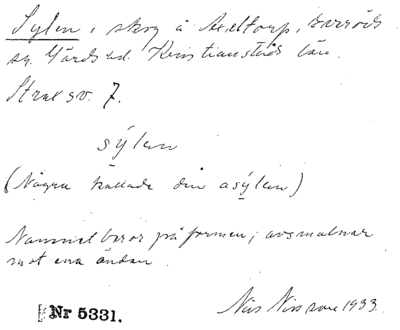 Sylen, skog å Axeltorp, Everöds
sn. Gärds hd. Kristianstads län.
Stral sv. 7.
sýlen
(Några kallade din asýlen)
Namnet beror på formen; avsmalnar
mot ena ändan.
Nr 5331. Nils Nilsson 1933.